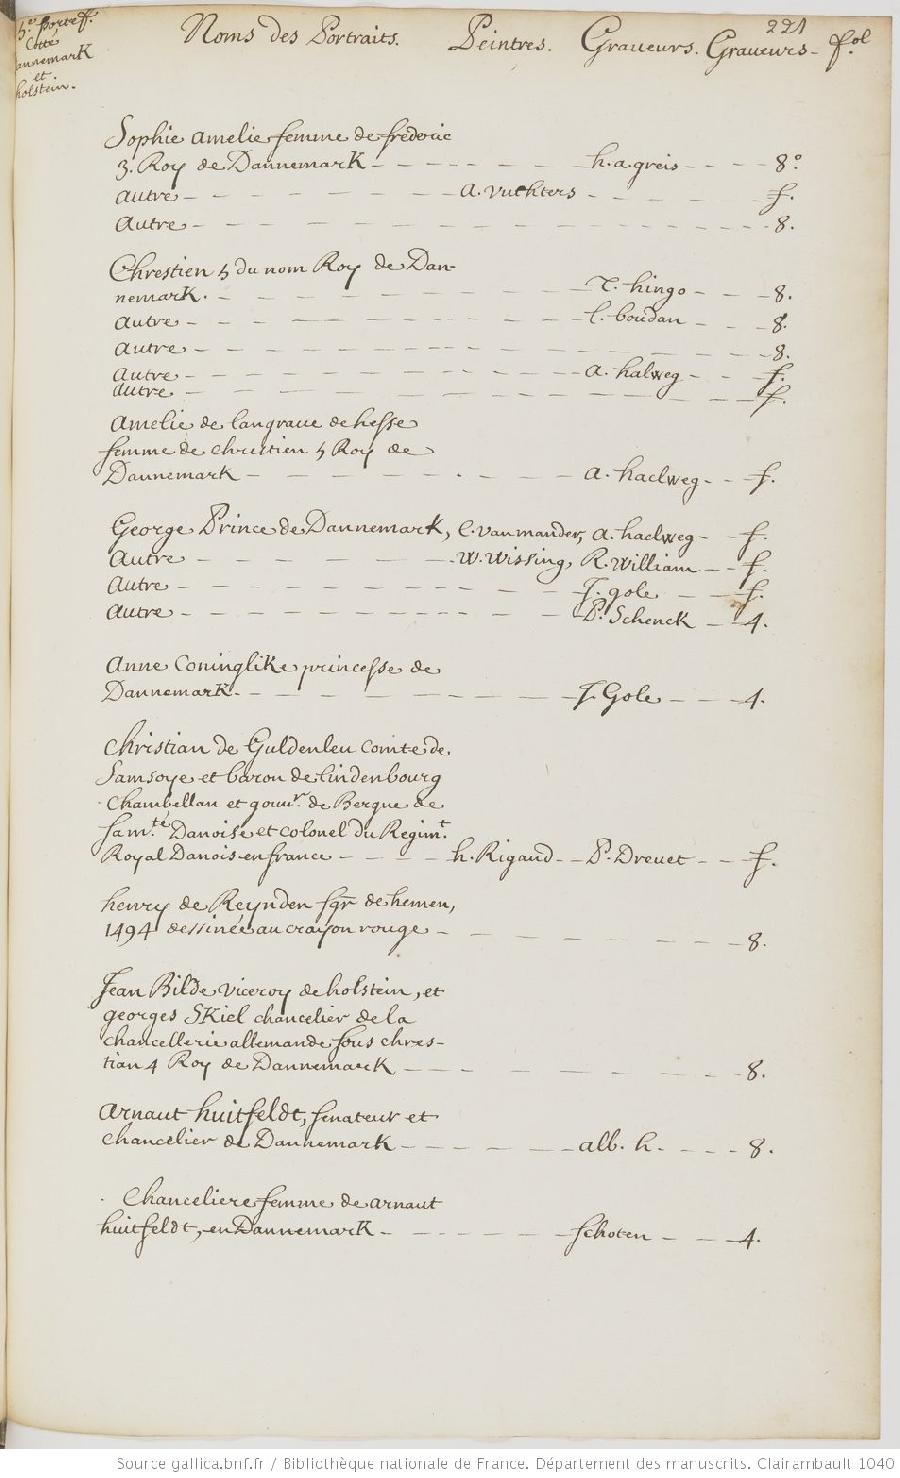 221
portef.
Cotté
annemark
et
holstein.
Noms des Portraits. Peintres. Graveurs. Graveurs - fol.
Sophie amelie femme de frederic
3. Roy de Dannemark - - - - h.a.greis - - - - 8°
autre - - - - a. vuchters - - - - f.
autre - - - - 8.
Chrestien 5 du nom Roy de Dan-
nemark. - - - - T. hingo - - - 8.
autre - - - - l. boudan - - - 8.
autre - - - - 8.
autre - - - - a. halweg - - f.
autre - - - - f.
amelie de langrave de hesse
femme de chrestien 5 Roy de
Dannemark - - - - a. haelweg - - f.
George Prince de Dannemark, C. van mander, a. haelweg - f.
autre - - - - W. Wissing, R. William - - f.
autre - - - - J. gole - - f.
autre - - - - P. Schenck - - 4.
anne Coninglike princesse de
Dannemark. - - - - J. Gole - - - 4.
Christian de Guldenleu comte de.
Samsoye et baron de lindenbourg
Chambellan et gouvr. de Bergue de
sa mté Danoise et colonel du Regimt.
Royal Danois en france - - - - h. Rigaud - - P. Drevet - - f.
henry de Reynden sgr de hemen,
1494 dessinée au crayon rouge - - - - 8.
Jean Bilde viceroy de holstein, et
georges SKiel chancelier de la
chancellerie allemande sous chres-
tian 4 Roy de Dannemarck - - - - 8.
arnaut huitfeldt, senateur et
chancelier de Dannemark - - - - alb. h. - - - 8.
Chanceliere femme de arnaut
huitfeldt, en Dannemark - - - - schoten - - - 4.
Source gallica.bnf.fr / Bibliothèque nationale de France. Département des manuscrits. Clairambault 1040